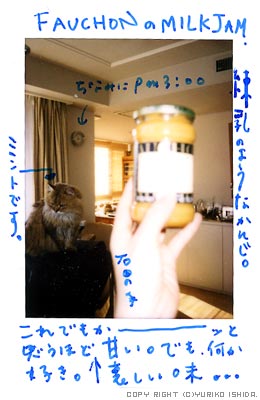 FAUCHONのMILKJAM.
ちなみにPM3:00
練乳のようなかんじ。
ミントです。
石田の手
これでもかーーーッと
思うほど甘い。でも、何か
好き。↑美しい味...
COPY RIGHT (C)YURIKO ISHIDA.